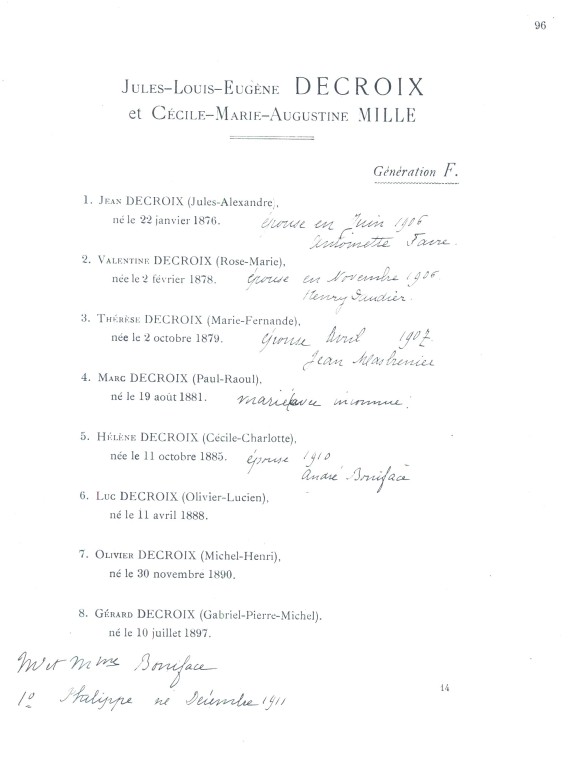 96
JULES-LOUIS-EUGÈNE DECROIX
et CÉCILE-MARIE-AUGUSTINE MILLE
Génération F.
1. JEAN DECROIX (Jules-Alexandre),
né le 22 janvier 1876. épouse en Juin 1906
Antoinette Favre.
2. VALENTINE DECROIX (Rose-Marie),
née le 2 février 1878. épouse en Novembre 1906
Henry
3. THÉRÈSE DECROIX (Marie-Fernande),
née le 2 octobre 1879. épouse Avril 1907
Jean
4. MARC DECROIX (Paul-Raoul),
né le 19 août 1881. marié avec inconnue!
5. HÉLÈNE DECROIX (Cécile-Charlotte),
née le 11 octobre 1885. épouse 1910
André Boniface
6. LUC DECROIX (Olivier-Lucien),
né le 11 avril 1888.
7. OLIVIER DECROIX (Michel-Henri),
né le 30 novembre 1890.
8. GÉRARD DECROIX (Gabriel-Pierre-Michel).
né le 10 juillet 1897.
Mr et Mme Boniface
1º Philippe né Décembre 1911
14